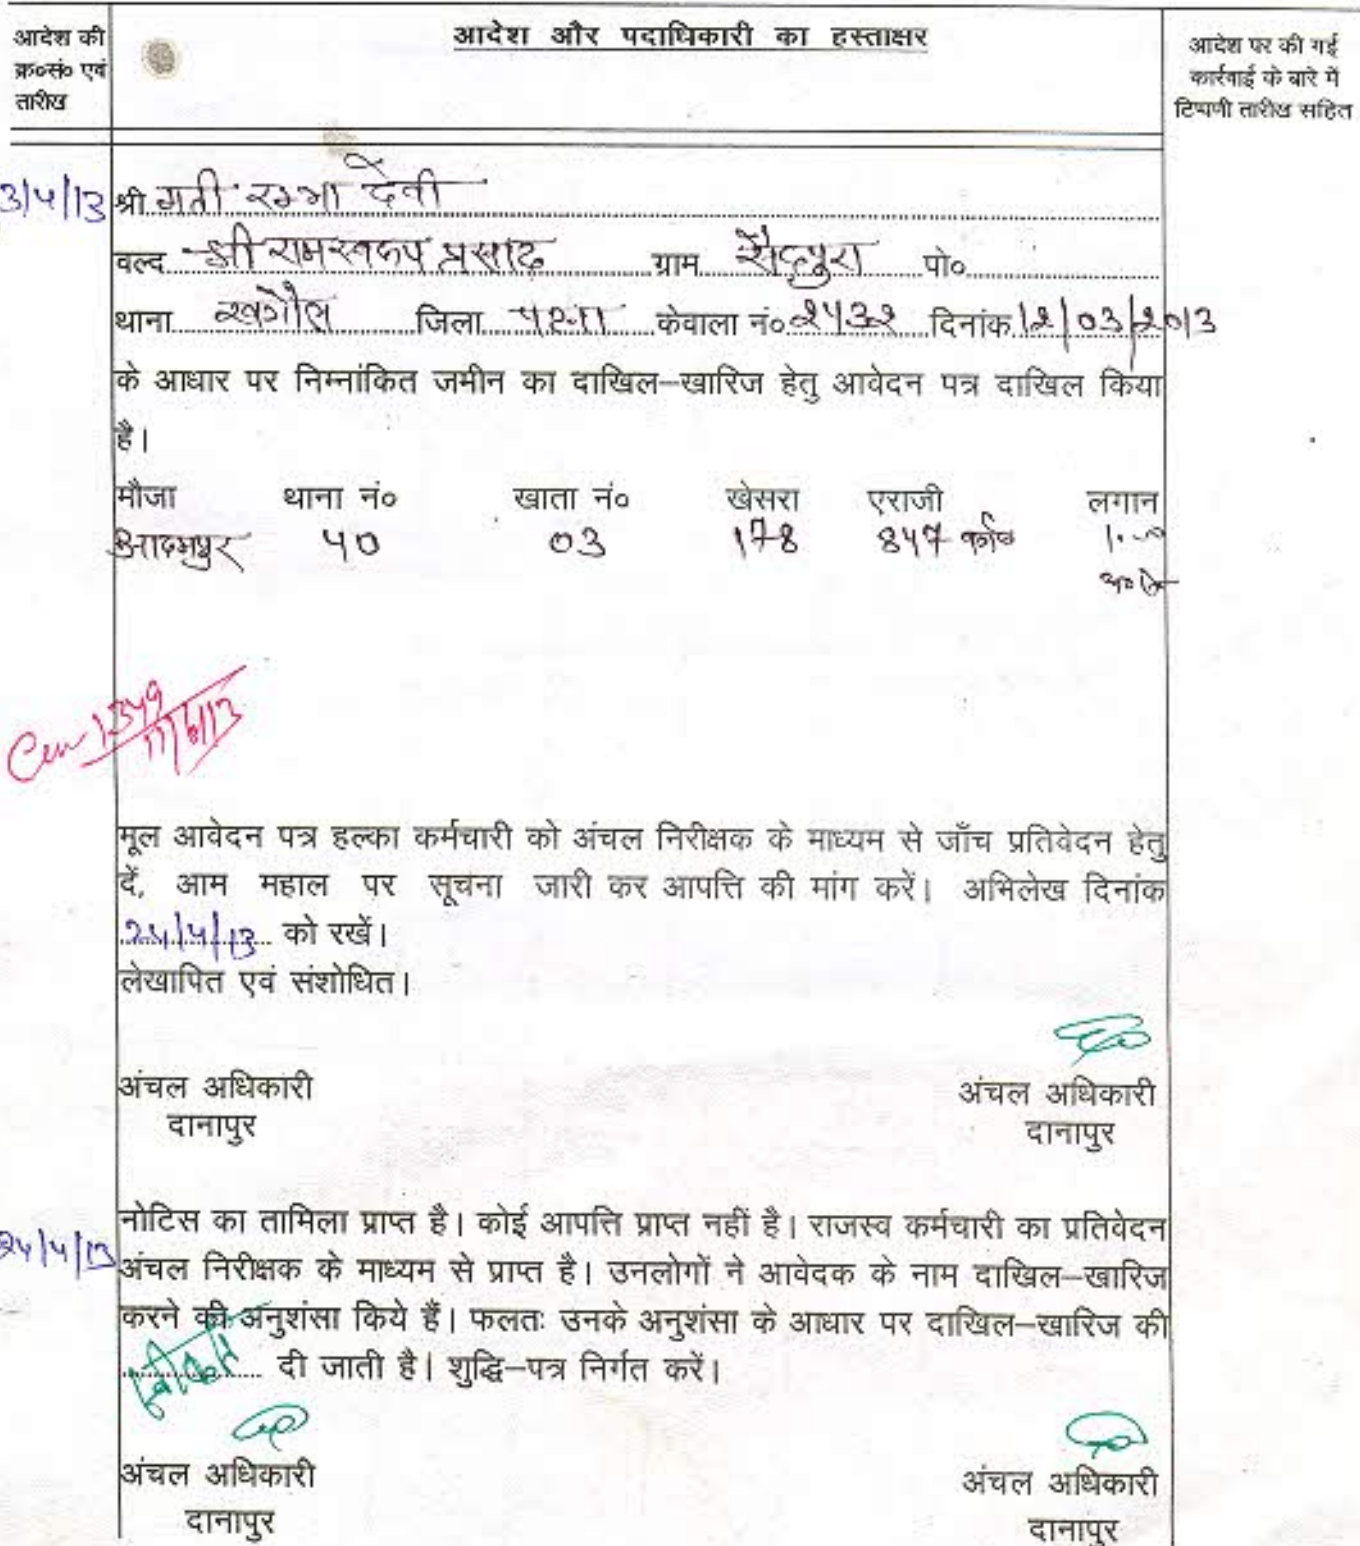 आदेश की
क्र०सं० एवं
तारीख
आदेश और पदाधिकारी का हस्ताक्षर
आदेश पर की गई
कार्रवाई के बारे में
टिप्पणी तारीख सहित
3/4/13 श्री मती रम्भा देवी
वल्द श्री रामस्वरूप प्रसाद ग्राम सैदपुरा पो०
थाना खगौल जिला पटना केवाला नं० 2432 दिनांक 12/03/2013
के आधार पर निम्नांकित जमीन का दाखिल–खारिज हेतु आवेदन पत्र दाखिल किया
है।
मौजा थाना नं० खाता नं० खेसरा एराजी लगान
आदमपुर 40 03 178 847
1349
17/6/13
मूल आवेदन पत्र हल्का कर्मचारी को अंचल निरीक्षक के माध्यम से जाँच प्रतिवेदन हेतु
दें, आम महाल पर सूचना जारी कर आपत्ति की मांग करें। अभिलेख दिनांक
24/4/13 को रखें।
लेखापित एवं संशोधित।
अंचल अधिकारी अंचल अधिकारी
दानापुर दानापुर
नोटिस का तामिला प्राप्त है। कोई आपत्ति प्राप्त नहीं है। राजस्व कर्मचारी का प्रतिवेदन
24/4/13 अंचल निरीक्षक के माध्यम से प्राप्त है। उनलोगों ने आवेदक के नाम दाखिल–खारिज
करने की अनुशंसा किये हैं। फलतः उनके अनुशंसा के आधार पर दाखिल–खारिज की
स्वीकृति दी जाती है। शुद्धि–पत्र निर्गत करें।
अंचल अधिकारी अंचल अधिकारी
दानापुर दानापुर